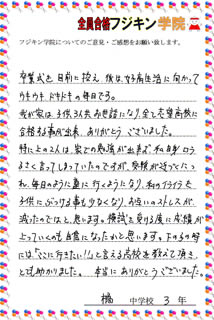 全員合格フジキン学院
フジキン学院についてのご意見・ご感想をお願い致します。
卒業式を目前に控え、後は、女子高生活に向かって
ウキウキ ドキドキの毎日です。
我が家は、子供3人お世話になり、全て志望校に
合格する事が出来、ありがとうございました。
特に上の2人は、家での勉強が出来ず私自身口う
るさく言ってしまっていたのですが、受験が近づくにつ
れ、毎日のように塾に行くようになり、私のイライラを
子供にぶつける事も少なくなり、お互いのストレスが
減ったのではと、思います。模試を受ける度に成績が
上っていくのも自信になったかと思います。下の子の時
には、「ここに行きたい!」と言える高校を教えて頂き
とても助かりました。本当にありがとうございました。
橘 中学校 3 年